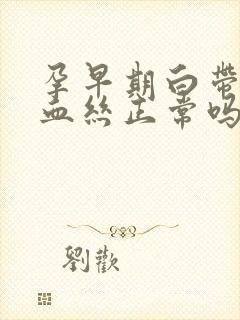 孕早期白带
血丝正常吗
劉歡